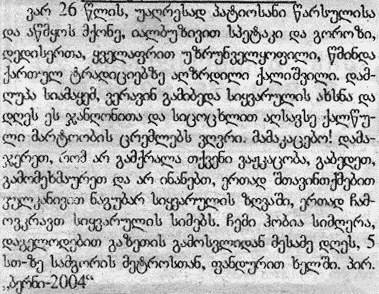 ვარ 26 წლის, უაღრესად პატიოსანი წარსულისა
და აწმყოს მქონე, იალბუზივით სპეტაკი და გოროზი,
დედისერთა, ყველაფრით უზრუნველყოფილი, წმინდა
ქართულ ტრადიციებზე აღზრდილი ქალიშვილი. დამ-
ღუპა სიამაყემ, ვერავინ გამიბედა სიყვარულის ახსნა და
დღეს ეს ჯანღონითა და სიცოცხლით აღსავსე ქალწუ-
ლი მარტოობის ცრემლებს ვღვრი. მამაკაცებო! დამა-
ჯერეთ, რომ არ გამქრალა თქვენი ვაჟკაცობა, გაბედეთ,
გამომეხმაურეთ და არ ინანებთ, ერთად შთავინთქმებით
ვულკანივით ნაგუბარ სიყვარულის ზღვაში, ერთად ჩამ-
ოვკრავთ სიყვარულის სიმებს. ჩემი ჰობია სიმღერა,
დაგელოდებით გაზეთის გამოსვლიდან მესამე დღეს, 5
სთ-ზე სამგორის მეტროსთან, ფანდურით ხელში. პირ.
„ბერნი-2004“